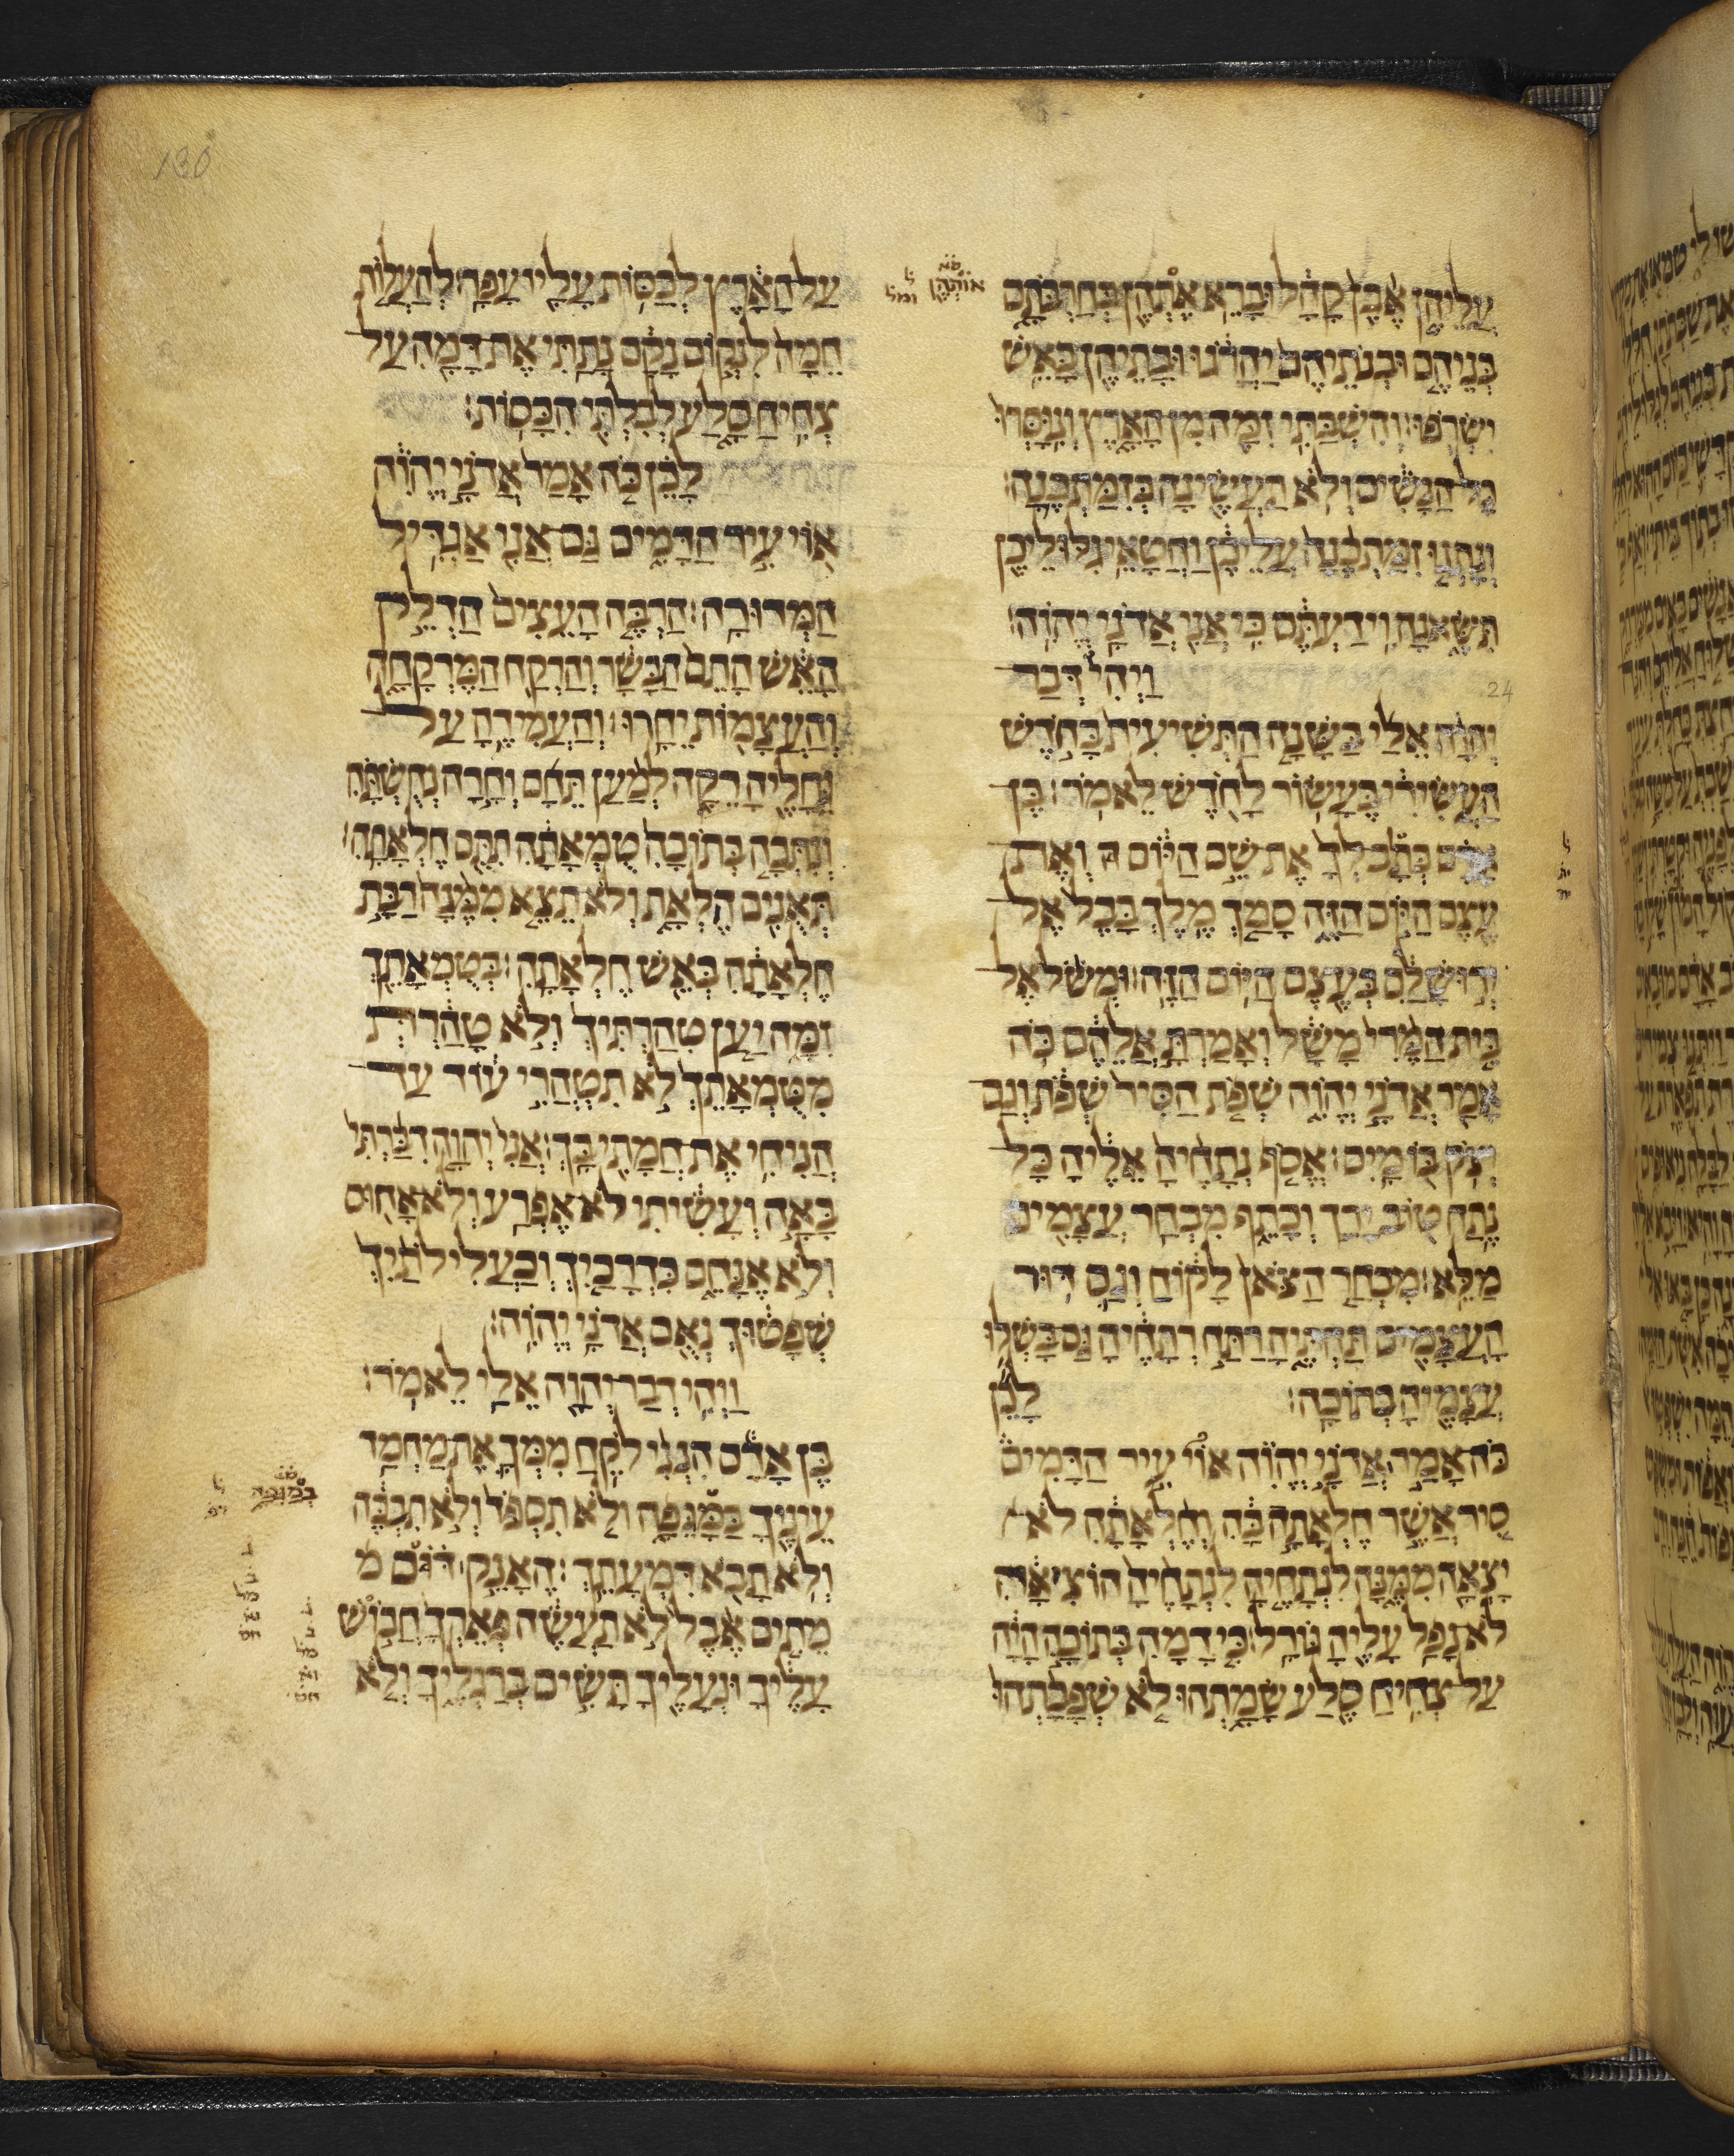 עליהן אבן קהל וברא אתהן בחרבתם
בניהם ובנתיהם יהרגו ובתיהן באש
ישרפו׃ והשבתי זמה מן הארץ ונוסרו
כל הנשים ולא תעשינה כזמתכנה׃
ונתנו זמתכנה עליכן וחטאי גלוליכן
תשאנה וידעתם כי אני אדני יהוה׃
ויהי דבר
24
יהוה אלי בשנה התשיעית בחדש
העשירי בעשור לחדש לאמר׃ בן
אדם כתב לך את שם היום ה ואת
עצם היום הזה סמך מלך בבל אל
ירושלם בעצם היום הזה׃ ומשל אל
בית המרי משל ואמרת אלהם כה
אמר אדני יהוה שפת הסיר שפת וגם
יצק בו מים׃ אסף נתחיה אליה כל
נתח טוב ירך וכתף מבחר עצמים
מלא׃ מבחר הצאן לקוח וגם דור
העצמים תחתיה רתח רתחיה גם בשלו
עצמיה בתוכה׃ לכן
כה אמר אדני יהוה אוי עיר הדמים
סיר אשר חלאתה בה וחלאתה לא
יצאה ממנה לנתחיה לנתחיה הוציאה
לא נפל עליה גורל׃ כי דמה בתוכה היה
על צחיח סלע שמתהו לא שפכתהו
אותהן
130
על הארץ לכסות עליו עפר׃ להעלות
חמה לנקום נקם נתתי את דמה על
צחיח סלע לבלתי הכסות׃
לכן כה אמר אדני יהוה
אוי עיר הדמים גם אני אגדיל
המדורה׃ הרבה העצים הדלק
האש התם הבשר והרקח המרקחה
והעצמות יחרו׃ והעמידה על
גחליה רקה למען תחם וחרה נחשתה
ונתכה בתוכה טמאתה תתם חלאתה׃
תאנים הלאת ולא תצא ממנה רבת
חלאתה באש חלאתה׃ בטמאתך
זמה יען טהרתיך ולא טהרת
מטמאתך לא תטהרי עוד עד
הניחי את חמתי בך׃ אני יהוה דברתי
באה ועשיתי לא אפרע ולא אחוס
ולא אנחם כדרכיך וכעלילתיך
שפטוך נאם אדני יהוה׃
ויהי דבר יהוה אלי לאמר׃
בן אדם הנני לקח ממך את מחמד
עיניך במגפה ולא תספד ולא תבכה
ולא תבא דמעתך׃ האנק דם מ
מתים אבל לא תעשה פארך חבוש
עליך ונעליך תשים ברגליך ולא